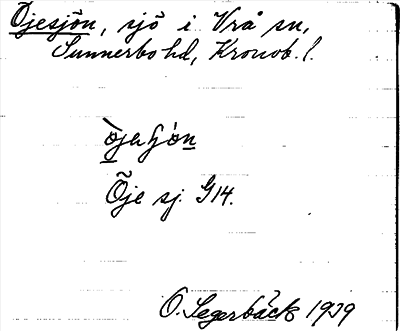 Öjesjön, sjö i Vrå sn,
Sunnerbo hd, Kronob. l.
Öje sj. G14.
O. Segerbäck 1929